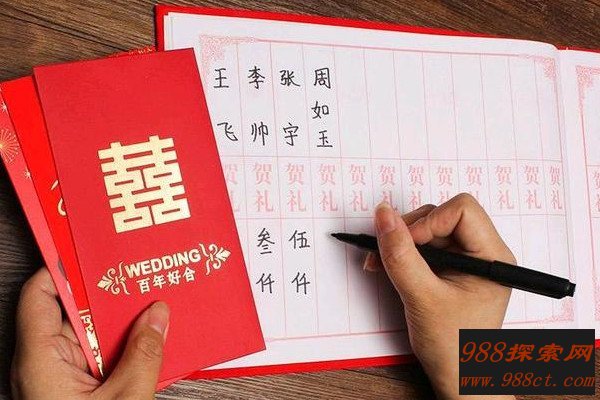 囍
WEDDING
百年好合
周如玉
张宇
李帅
王飞
贺礼
贺礼
贺礼
贺礼
贺礼
贺礼
贺礼
贺礼
贺礼
贺礼
贺礼
伍仟
叁仟
988探索网
www.988ct.com